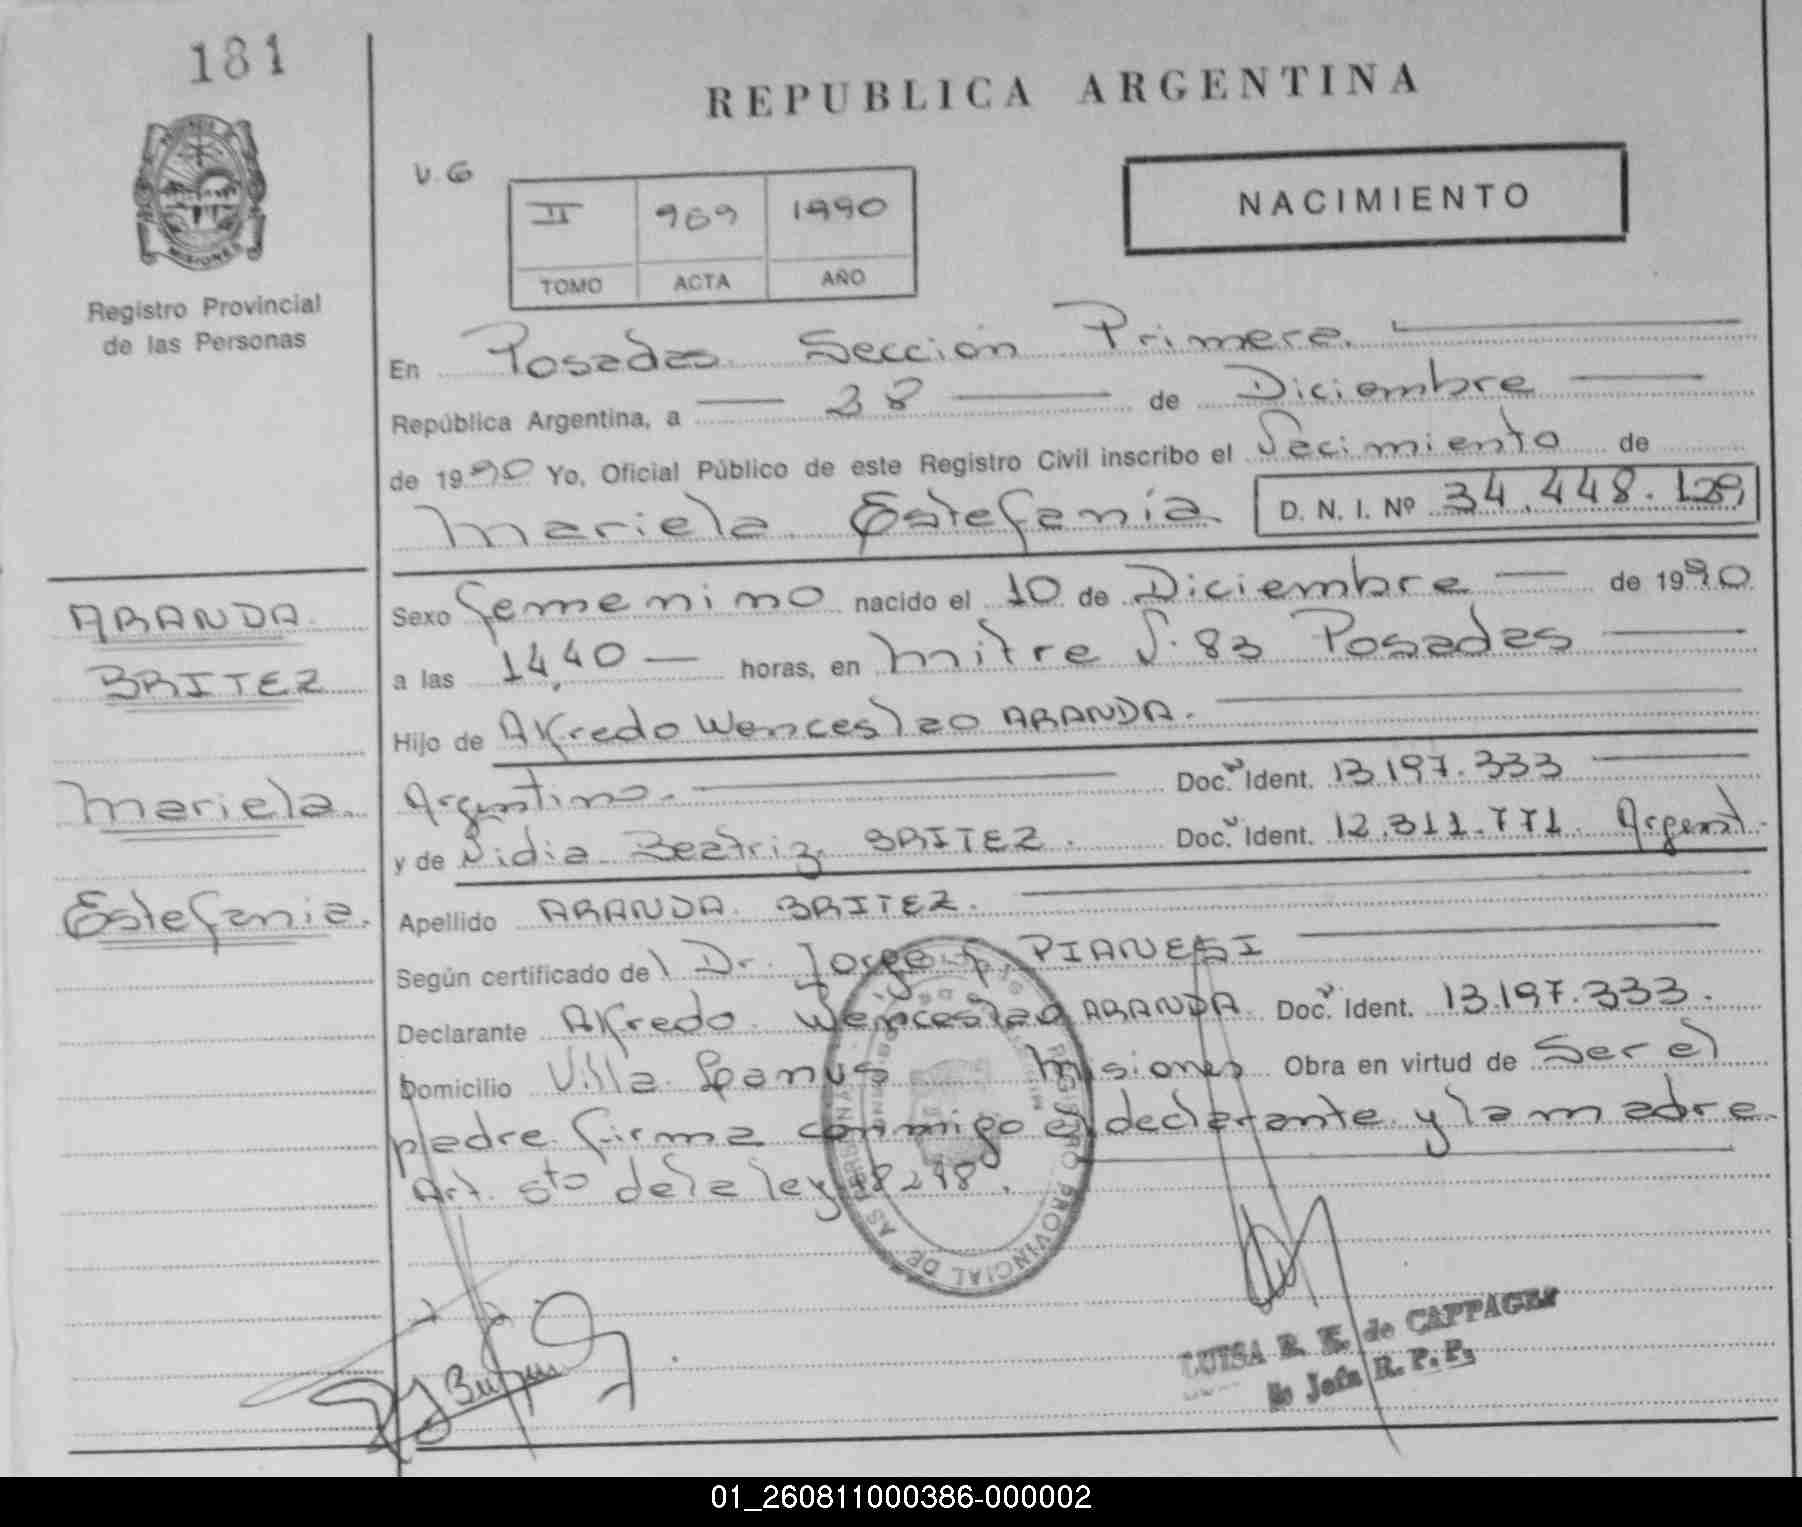 181
REPUBLICA ARGENTINA
MISIONES
Registro Provincial
de las Personas
V.G
II 969 1990
TOMO ACTA AÑO
NACIMIENTO
En Posadas Sección Primera.
República Argentina, a 28 de Diciembre
de 1990 Yo, Oficial Público de este Registro Civil inscribo el Nacimiento de
Mariela Estefanía D. N. I. Nº 34.448.129
ARANDA
BRITEZ
Mariela
Estefania.
Sexo femenino nacido el 10 de Diciembre de 1990
a las 14,40 horas, en Mitre N. 83 Posadas
Hijo de Alfredo Wenceslao ARANDA.
Argentino. Doc. Ident. 13.197.333
y de Nidia Beatriz BRITEZ. Doc. Ident. 12.311.771 Argent.
Apellido ARANDA BRITEZ.
Según certificado del Dr. Jorge PIANESI
Declarante Alfredo Wenceslao ARANDA Doc. Ident. 13.197.333.
Domicilio Villa Lanus Misiones Obra en virtud de Ser el
padre firma conmigo el declarante y la madre
Art. 5to de la ley 18248.
REGISTRO PROVINCIAL DE LAS PERSONAS
LUISA de CAPPAGES
Jefa R. P. P.
01_260811000386-000002